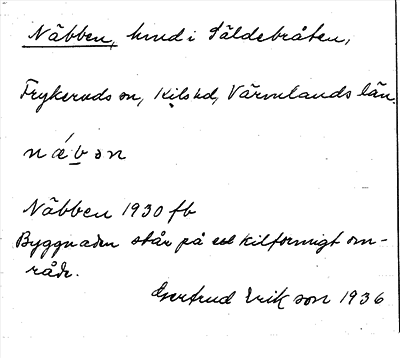 Näbben, hmd i Säldebråten,
Frykeruds sn, Kils hd, Värmlands län.
næ´bən
Näbben 1930 fb
Byggnaden står på ett kilformigt om-
råde.
Gertrud Erikson 1936